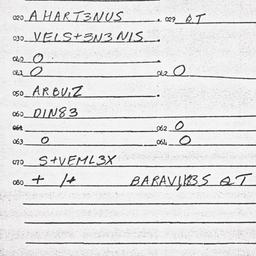 020 AHART3NUS . 029 QT
030 VELS+3N3NIS .
040 O .
041 O 042 O
050 ARBUIZ .
060 DIN83
061 062 O
063 O 064 O
070 S+VEML3X
080 + /+ BARAVI, QT